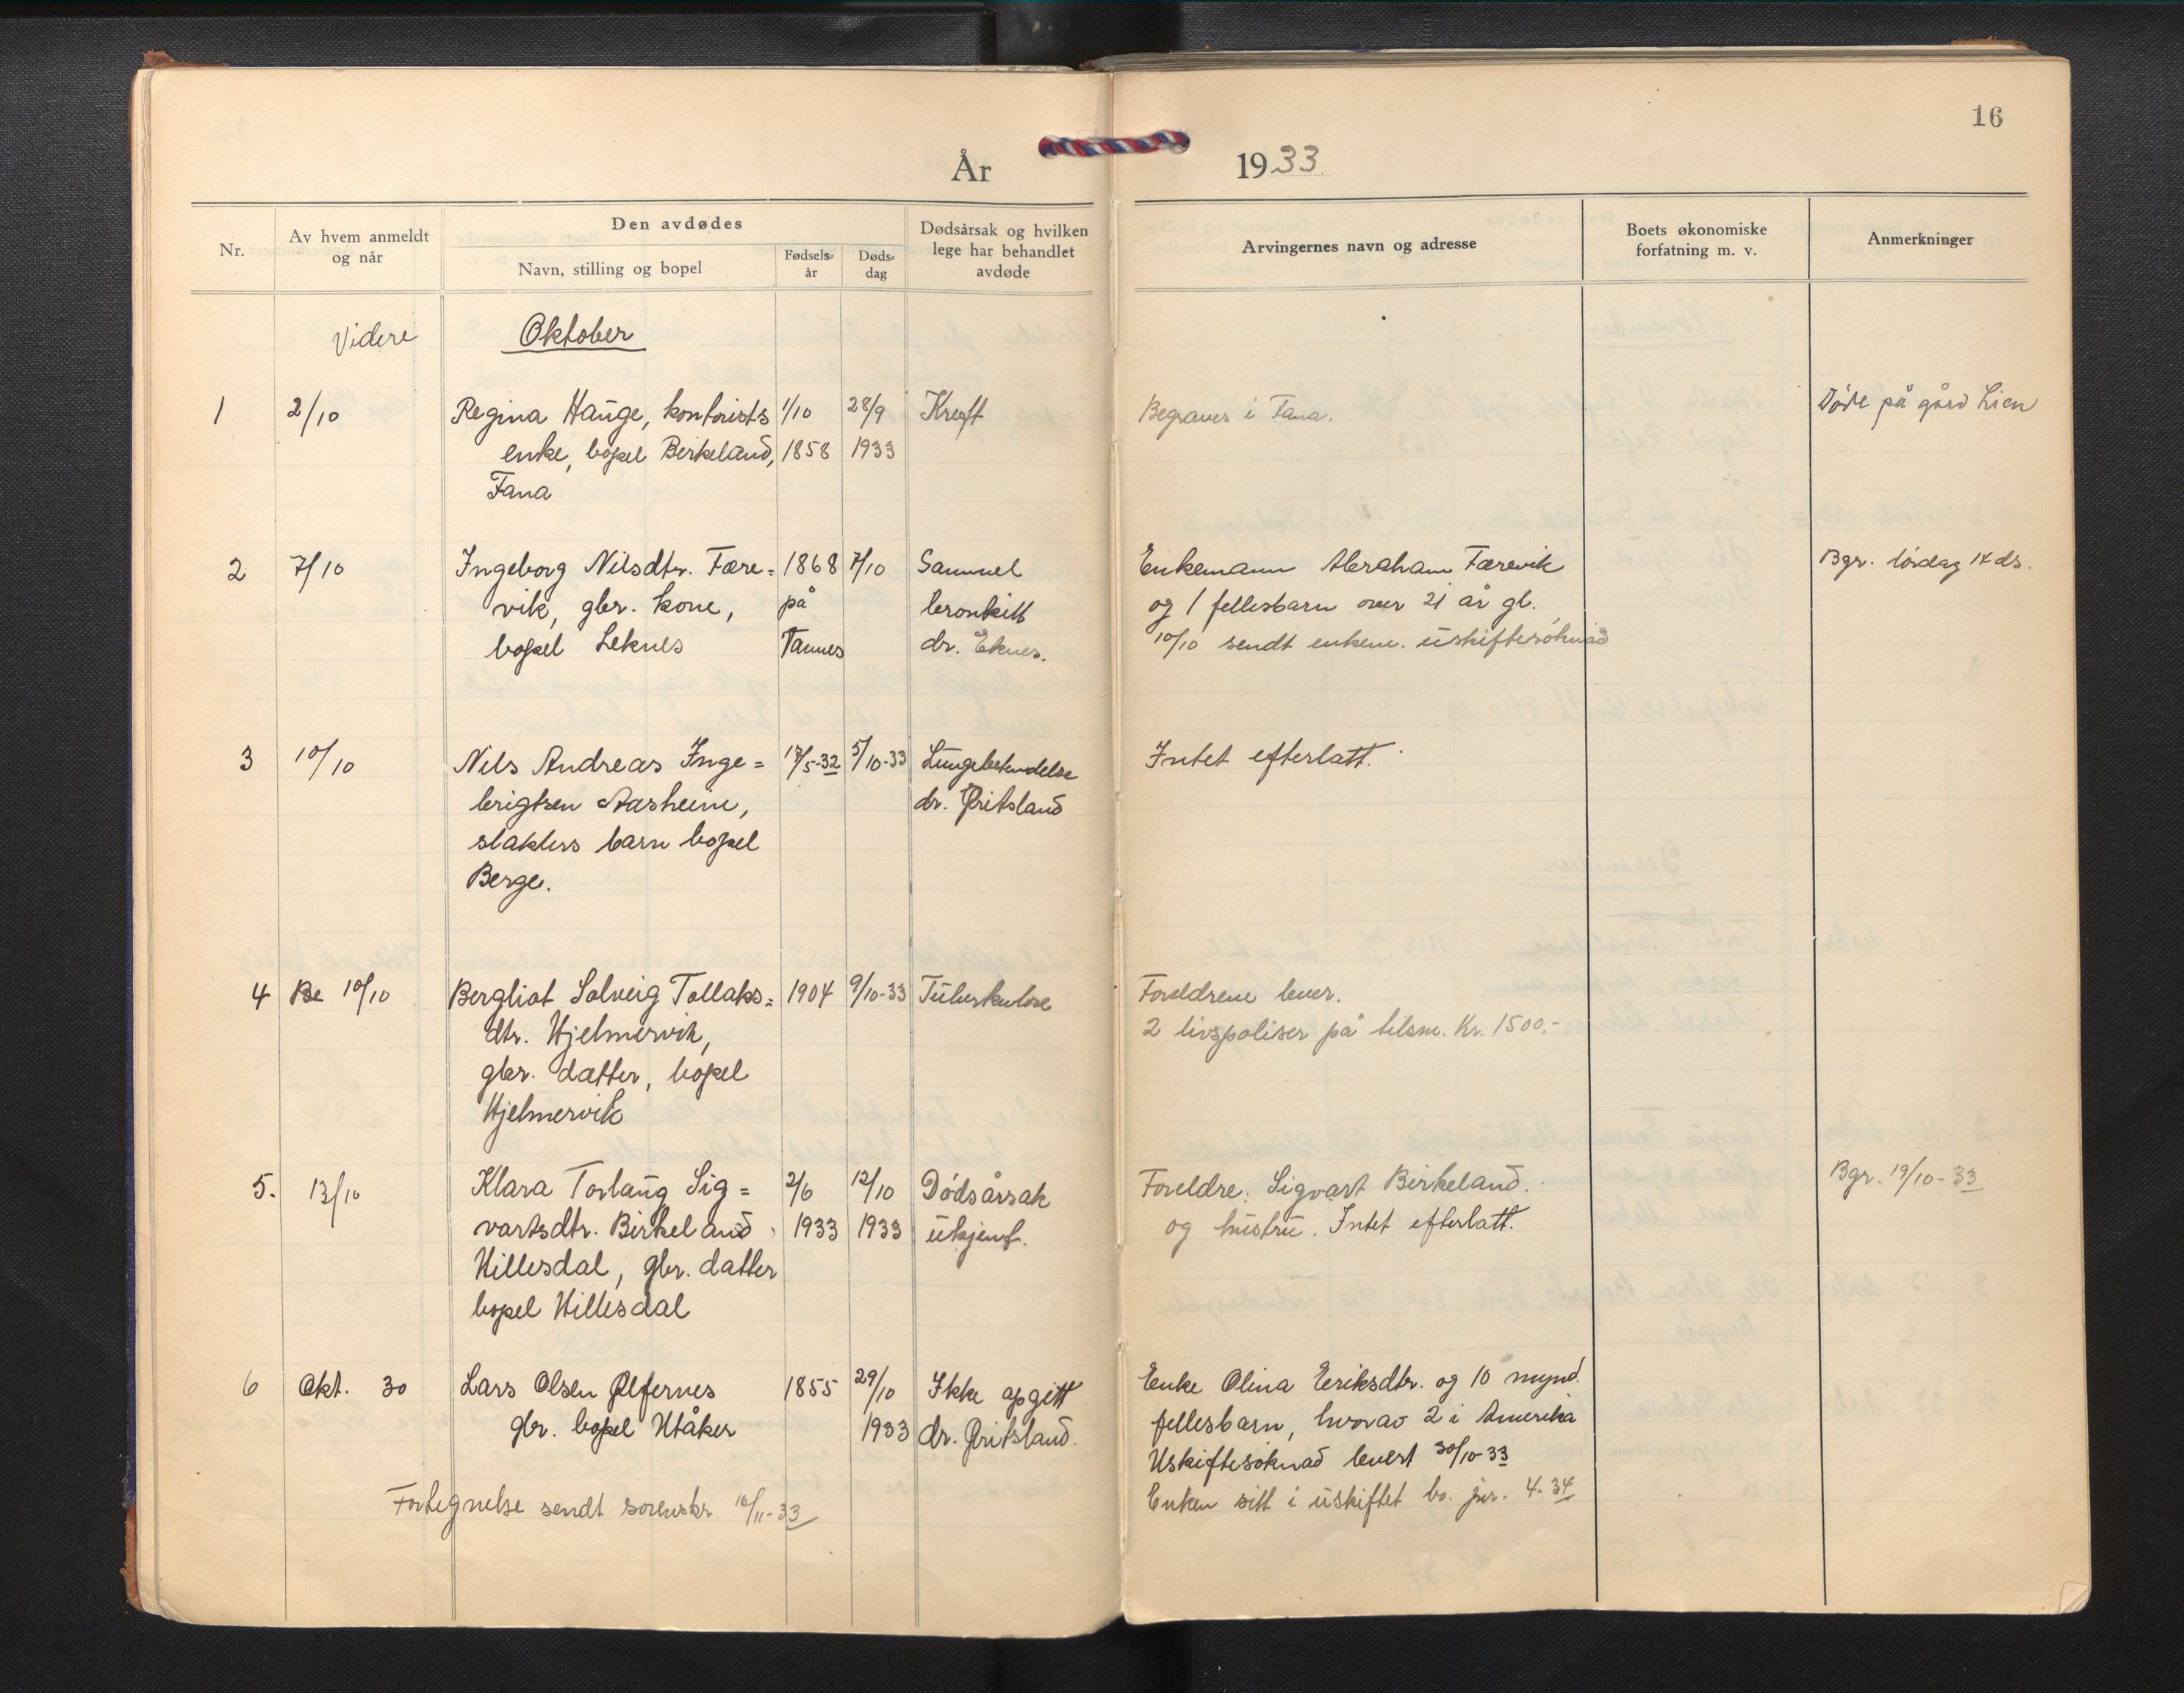 16
År 1933
Nr.
Av hvem anmeldt
og når
Den avdødes
Navn, stilling og bopel
Fødsels-
år
Døds-
dag
Dødsårsak og hvilken
lege har behandlet
avdøde
Arvingernes navn og adresse
Boets økonomiske
forfatning m. v.
Anmerkninger
Videre Oktober
1 2/10 Regina Hauge, kontorists 1/10 28/9 Kreft Begraves i Fana. Døde på gård Lien
enke, bopel Birkeland, 1858 1933
Fana
2 7/10 Ingeborg Nilsdtr. Fære= 1868 7/10 Enkemann Abraham Færevik Bgr. lørdag 14 ds.
vik, gbr. kone, på bronkitt og 1 fellesbarn over 21 år gl.
bopel Leknes Tannes dr. Eknes. 10/10 sendt enkem. uskiftesøknad
3 10/10 Nils Andreas Inge= 17/5-32 5/10-33 Lungebetendelse Intet efterlatt.
brigtsen Aasheim, dr. Øritsland
slakters barn bopel
Berge.
4 Be 10/10 Bergliot Solveig Tollaks= 1904 9/10-33 Tuberkulose Foreldrene lever.
dtr. Hjelmervik, 2 livspoliser på tilsm. Kr. 1500.-
gbr. datter, bopel
Hjelmervik
5. 13/10 Klara Torlaug Sig= 2/6 12/10 Dødsårsak Foreldre: Sigvart Birkeland. Bgr. 19/10-33
vartsdtr. Birkeland 1933 1933 ukjent. og hustru. Intet efterlatt.
Hillesdal, gbr. datter
bopel Hillesdal
6 Okt. 30 Lars Olsen Ølfernes 1855 29/10 Ikke opgitt Enke Olina Eeriksdtr. og 10 mynd.
gbr. bopel Utåker 1933 dr. Øritsland. fellesbarn, hvorav 2 i Amerika
Uskiftesøknad levert 30/10-33
Fortegnelse sendt sorenskr. 10/11-33 Enken sitt i uskiftet bo. jnr. 4-34